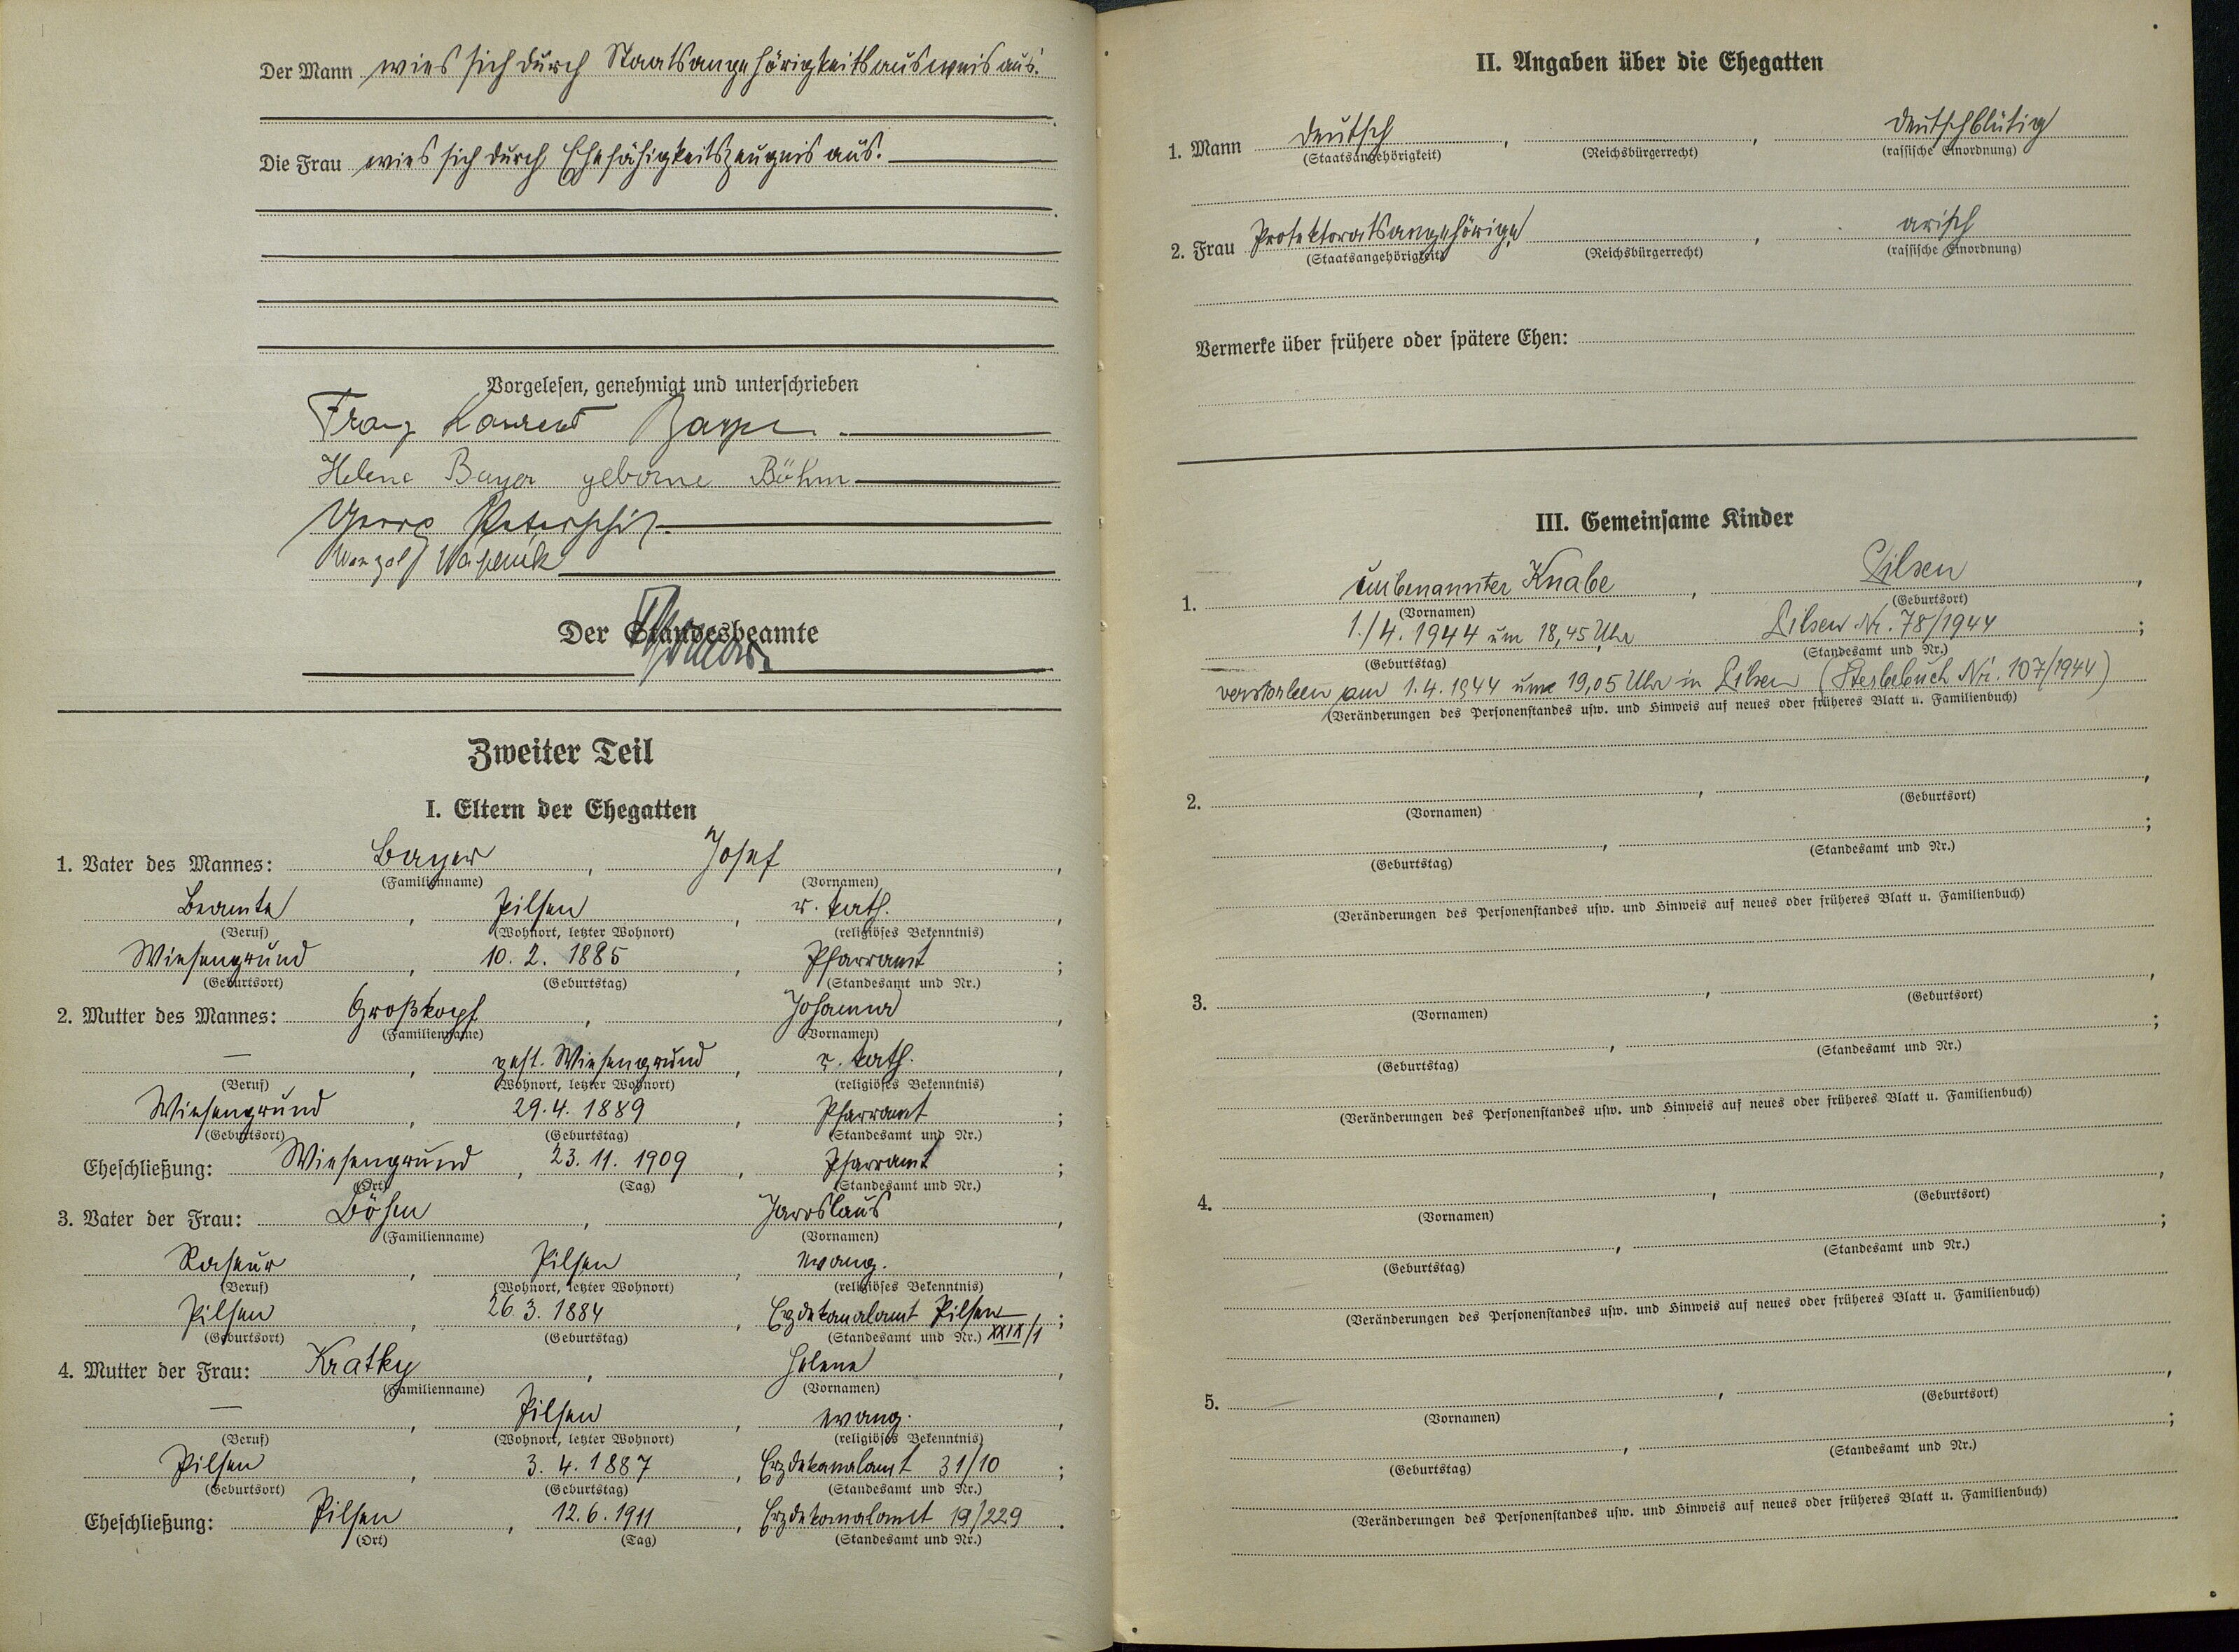 Der Mann wies sich durch Staatsangehörigkeitsausweis aus.
Die Frau wies sich durch Ehefähigkeitszeugnis aus.
Vorgelesen, genehmigt und unterschrieben
Franz Bayer
Helene Bayer geborne Böhm
Georg
Wenzel
Der Standesbeamte
Zweiter Teil
I. Eltern der Ehegatten
1. Vater des Mannes: Bayer, Josef,
(Familienname) (Vornamen)
Beamte, Pilsen, r. kath.,
(Beruf) (Wohnort, letzter Wohnort) (religiöses Bekenntnis)
Wiesengrund, 10. 2. 1885, Pfarramt;
(Geburtsort) (Geburtstag) (Standesamt und Nr.)
2. Mutter des Mannes: Großkopf, Johanna,
(Familienname) (Vornamen)
—, gest. Wiesengrund, r. kath.,
(Beruf) (Wohnort, letzter Wohnort) (religiöses Bekenntnis)
Wiesengrund, 29. 4. 1889, Pfarramt;
(Geburtsort) (Geburtstag) (Standesamt und Nr.)
Eheschließung: Wiesengrund, 23. 11. 1909, Pfarramt;
(Ort) (Tag) (Standesamt und Nr.)
3. Vater der Frau: Böhm, Jaroslaus,
(Familienname) (Vornamen)
Raseur, Pilsen, evang.,
(Beruf) (Wohnort, letzter Wohnort) (religiöses Bekenntnis)
Pilsen, 26. 3. 1884, Erzdekanalamt Pilsen;
(Geburtsort) (Geburtstag) (Standesamt und Nr.) XXIX/1
4. Mutter der Frau: Kratky, Helene,
(Familienname) (Vornamen)
—, Pilsen, evang.,
(Beruf) (Wohnort, letzter Wohnort) (religiöses Bekenntnis)
Pilsen, 3. 4. 1887, Erzdekanalamt 31/10;
(Geburtsort) (Geburtstag) (Standesamt und Nr.)
Eheschließung: Pilsen, 12. 6. 1911, Erzdekanalamt 19/229.
(Ort) (Tag) (Standesamt und Nr.)
II. Angaben über die Ehegatten
1. Mann deutsch, , deutschblütig
(Staatsangehörigkeit) (Reichsbürgerrecht) (rassische Einordnung)
2. Frau Protektoratsangehörige, arisch
(Staatsangehörigkeit) (Reichsbürgerrecht) (rassische Einordnung)
Vermerke über frühere oder spätere Ehen:
III. Gemeinsame Kinder
1. unbenannter Knabe, Pilsen,
(Vornamen) (Geburtsort)
1./4. 1944 um 18,45 Uhr, Pilsen Nr. 78/1944;
(Geburtstag) (Standesamt und Nr.)
verstorben am 1. 4. 1944 um 19,05 Uhr in Pilsen (Sterbebuch Nr. 107/1944)
(Veränderungen des Personenstandes usw. und Hinweis auf neues oder früheres Blatt u. Familienbuch)
2. , ,
(Vornamen) (Geburtsort)
, ;
(Geburtstag) (Standesamt und Nr.)
(Veränderungen des Personenstandes usw. und Hinweis auf neues oder früheres Blatt u. Familienbuch)
3. , ,
(Vornamen) (Geburtsort)
, ;
(Geburtstag) (Standesamt und Nr.)
(Veränderungen des Personenstandes usw. und Hinweis auf neues oder früheres Blatt u. Familienbuch)
4. , ,
(Vornamen) (Geburtsort)
, ;
(Geburtstag) (Standesamt und Nr.)
(Veränderungen des Personenstandes usw. und Hinweis auf neues oder früheres Blatt u. Familienbuch)
5. , ,
(Vornamen) (Geburtsort)
, ;
(Geburtstag) (Standesamt und Nr.)
(Veränderungen des Personenstandes usw. und Hinweis auf neues oder früheres Blatt u. Familienbuch)